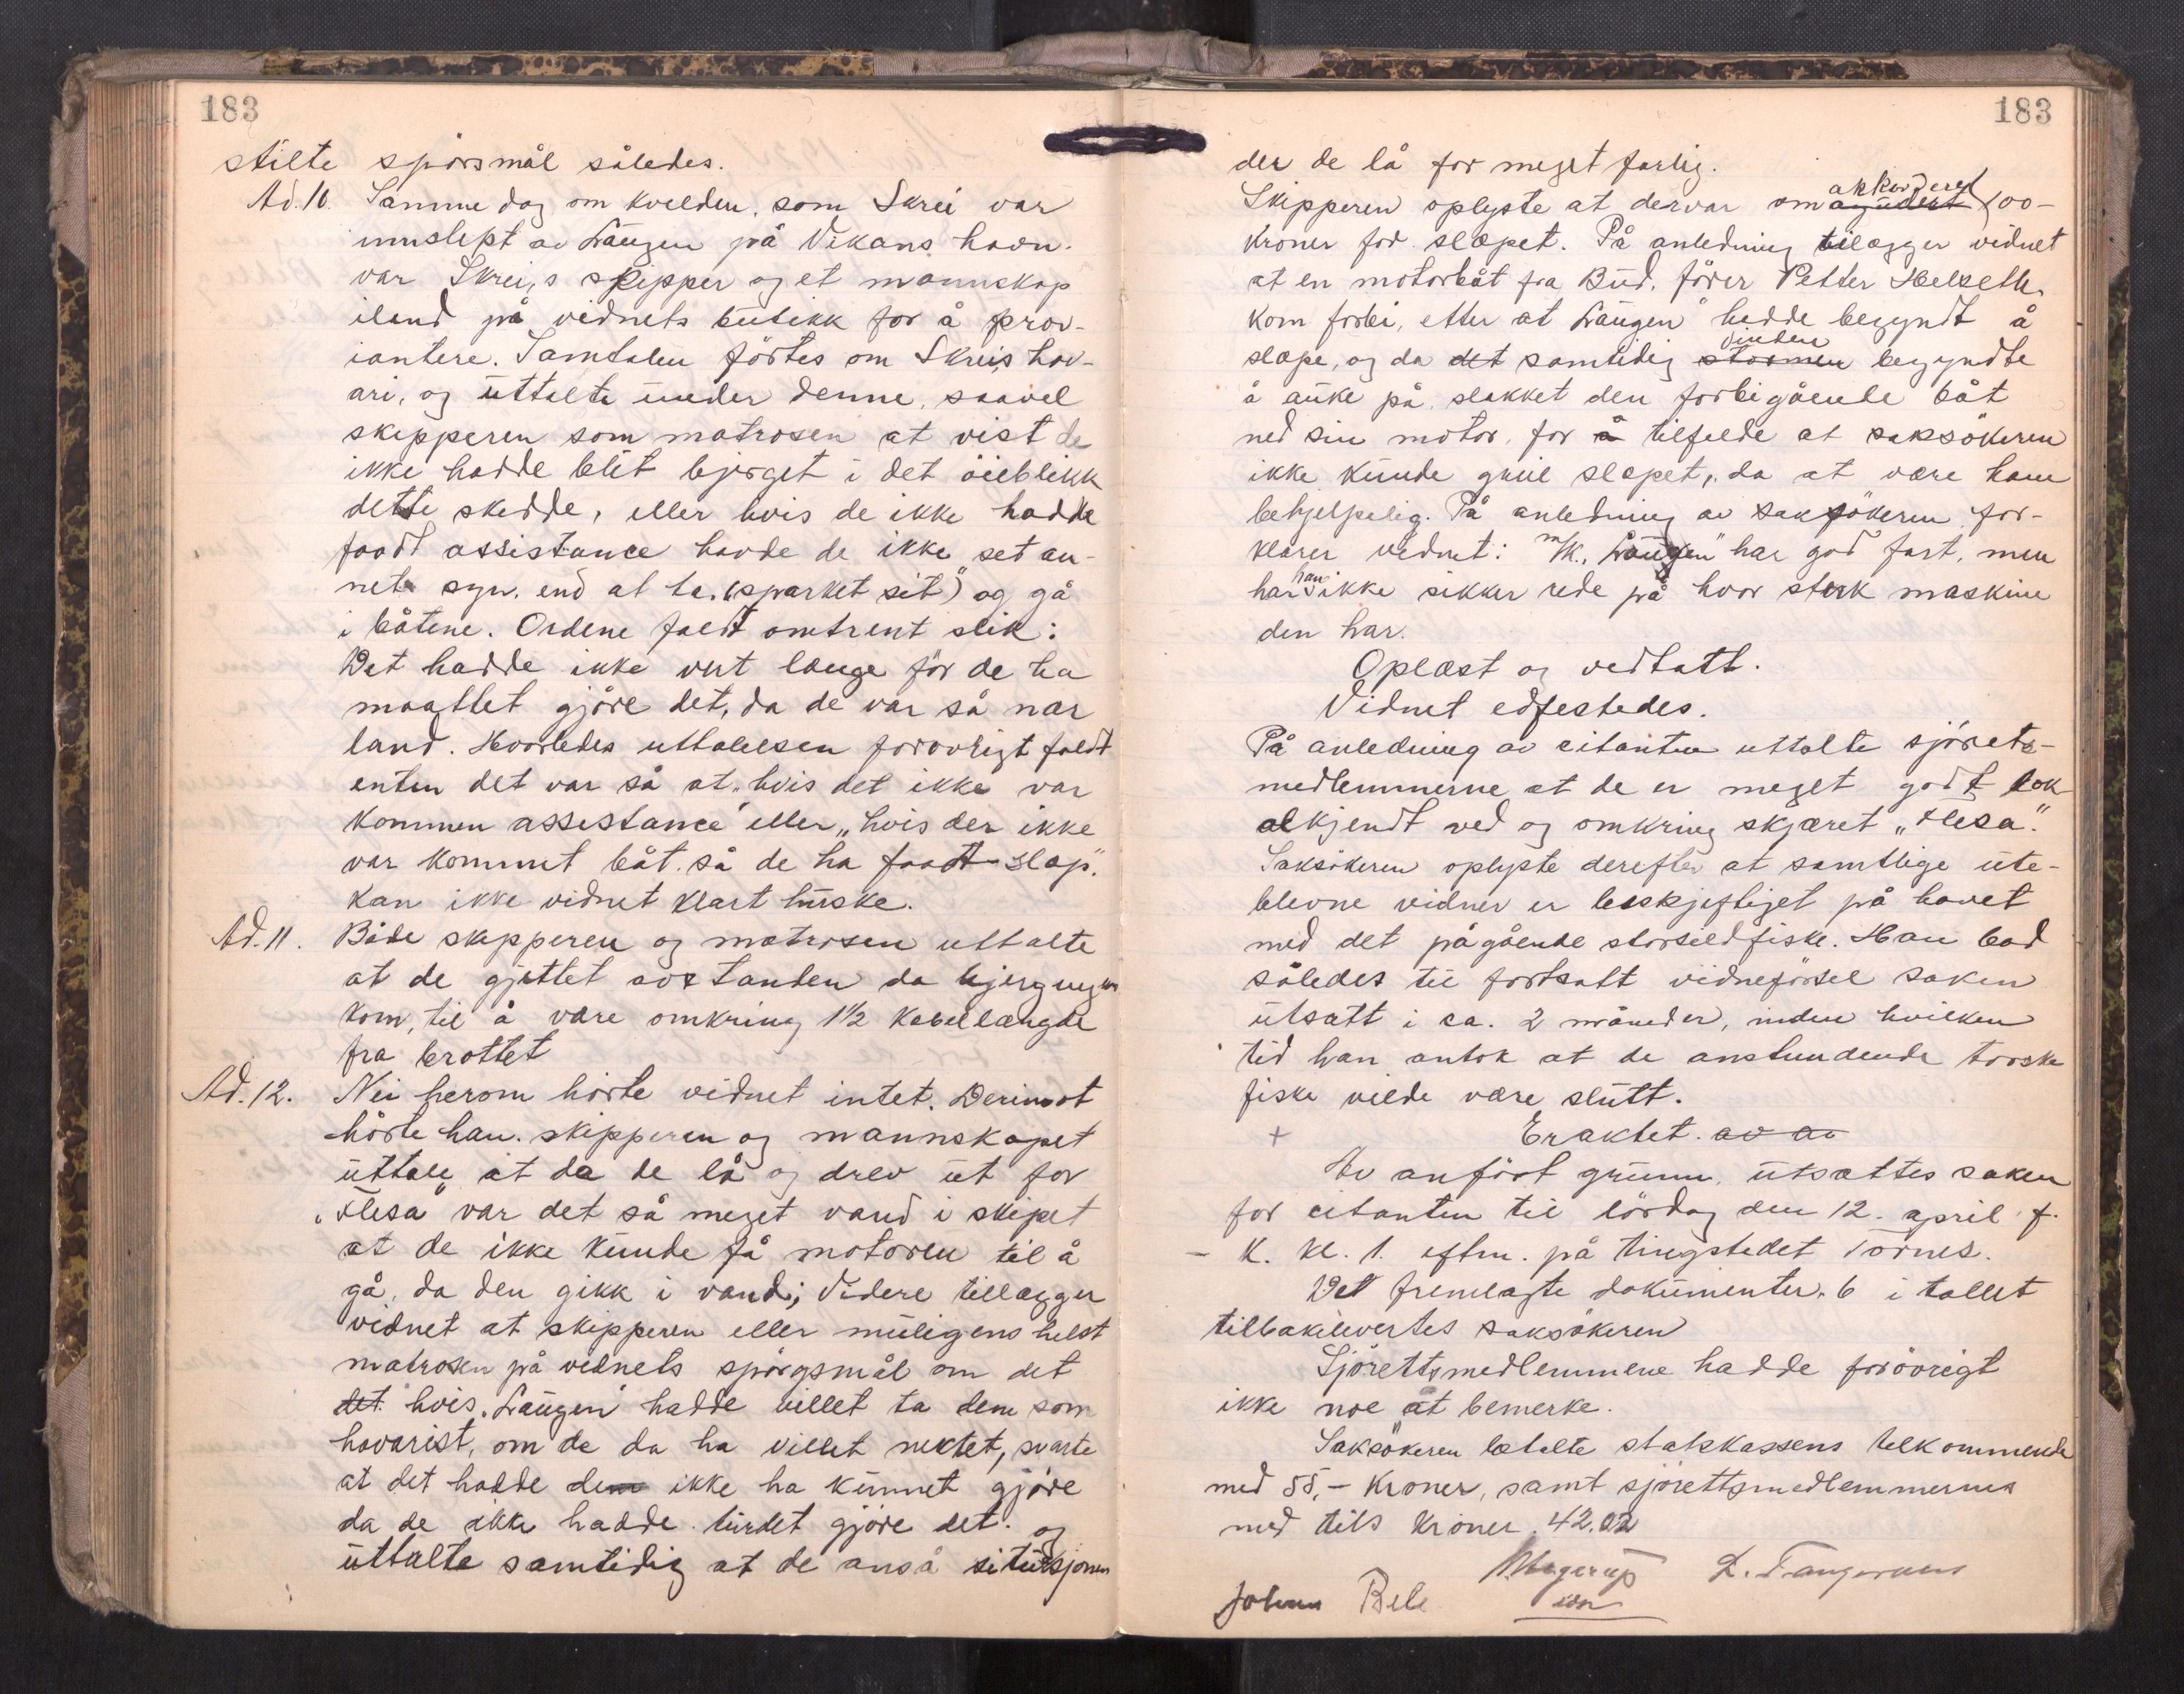 183
stilte spörsmål således.
Ad. 10. Samme dag om kvelden, som Skrei var
innslept av Laugen på Vikans havn.
var Skrei,s skipper og et mannskap
iland på vidnets butikk for å prov-
iantere. Samtalen förtes om Skreis hav-
ari, og uttalte under denne, saavel
skipperen som matrosen at vist de
ikke hadde blit bjerget i det öieblikk
dette skedde, eller hvis de ikke hadde
faadt assistance havde de ikke set an-
net syn, end at ta „sparket sit" og gå
i båtene. Ordene faldt omtrent slik:
Det hadde ikke vert længe för de ha
maattet gjöre det, da de var så nær
land. Hvorledes uttalelsen forøvrigt faldt
enten det var så at „hvis det ikke var
kommen assistance" eller „hvis der ikke
var kommet båt så de ha faadt slæp".
kan ikke vidnet klart huske.
Ad. 11. Både skipperen og matrosen uttalte
at de gjettet avstanden da bjergingen
kom, til å være omkring 1½ kabellængde
fra brottet
Ad. 12. Nei herom hörte vidnet intet. Derimot
hörte han skipperen og mannskapet
uttale at da de lå og drev ut for
„Flesa" var det så meget vand i skipet
at de ikke kunde få motoren til å
gå, da den gikk i vand; Videre tillægger
vidnet at skipperen eller muligens helst
matrosen på vidnets spörgsmål om det
det hvis „Laugen" hadde villet ta dem som
havarist, om de da ha villet nektet, svarte
at det hadde dem ikke ha kunnet gjöre
da de ikke hadde turdet gjöre det. og
uttalte samtidig at de anså situasjonen
183
der de lå for meget farlig.
akkorderet
Skipperen oplyste at dervar om 100-
kroner for slæpet. På anledning tilægger vidnet
at en motorbåt fra Bud, förer Petter Helseth
kom forbi, etter at „Laugen" hadde begyndt å
vinden
slæpe, og da det samtidig stormen begyndte
å auke på, slakket den forbigående båt
ned sin motor, for å tilfelde at saksökeren
ikke kunde greie slæpet, da at være ham
behjelpelig. På anledning av saksökeren for-
klarer vidnet: m/k. „Laugen" har god fart, men
han
har ikke sikker rede på hvor sterk maskine
den har.
Oplæst og vedtatt.
Vidnet edfestedes.
På anledning av citanten uttalte sjörets-
medlemmerne at de er meget godt lok-
alkjendt ved og omkring skjæret „Flesa".
Saksökeren oplyste derefter at samtlige ute-
blevne vidner er beskjeftiget på havet
med det pågående storsildfiske. Han bad
således til fortsatt vidneförsel saken
utsatt i ca. 2 måneder, inden hvilken
tid han antok at de anstundende torske
fiske vilde være slutt.
+ Eraktet. av av
Av anfört grunn, utsattes saken
for citanten til lördag den 12. april f.
- k. kl. 1. eftm. på tingstedet Tornes.
Det fremlagte dokumenter. 6 i tallet
tilbakelevertes saksökeren
Sjörettsmedlemmene hadde forövrigt
ikke noe at bemerke.
Saksökeren betalte statskassens tilkommende
med 55,- kroner, samt sjörettsmedlemmernes
med tils kroner. 42.02
Johan